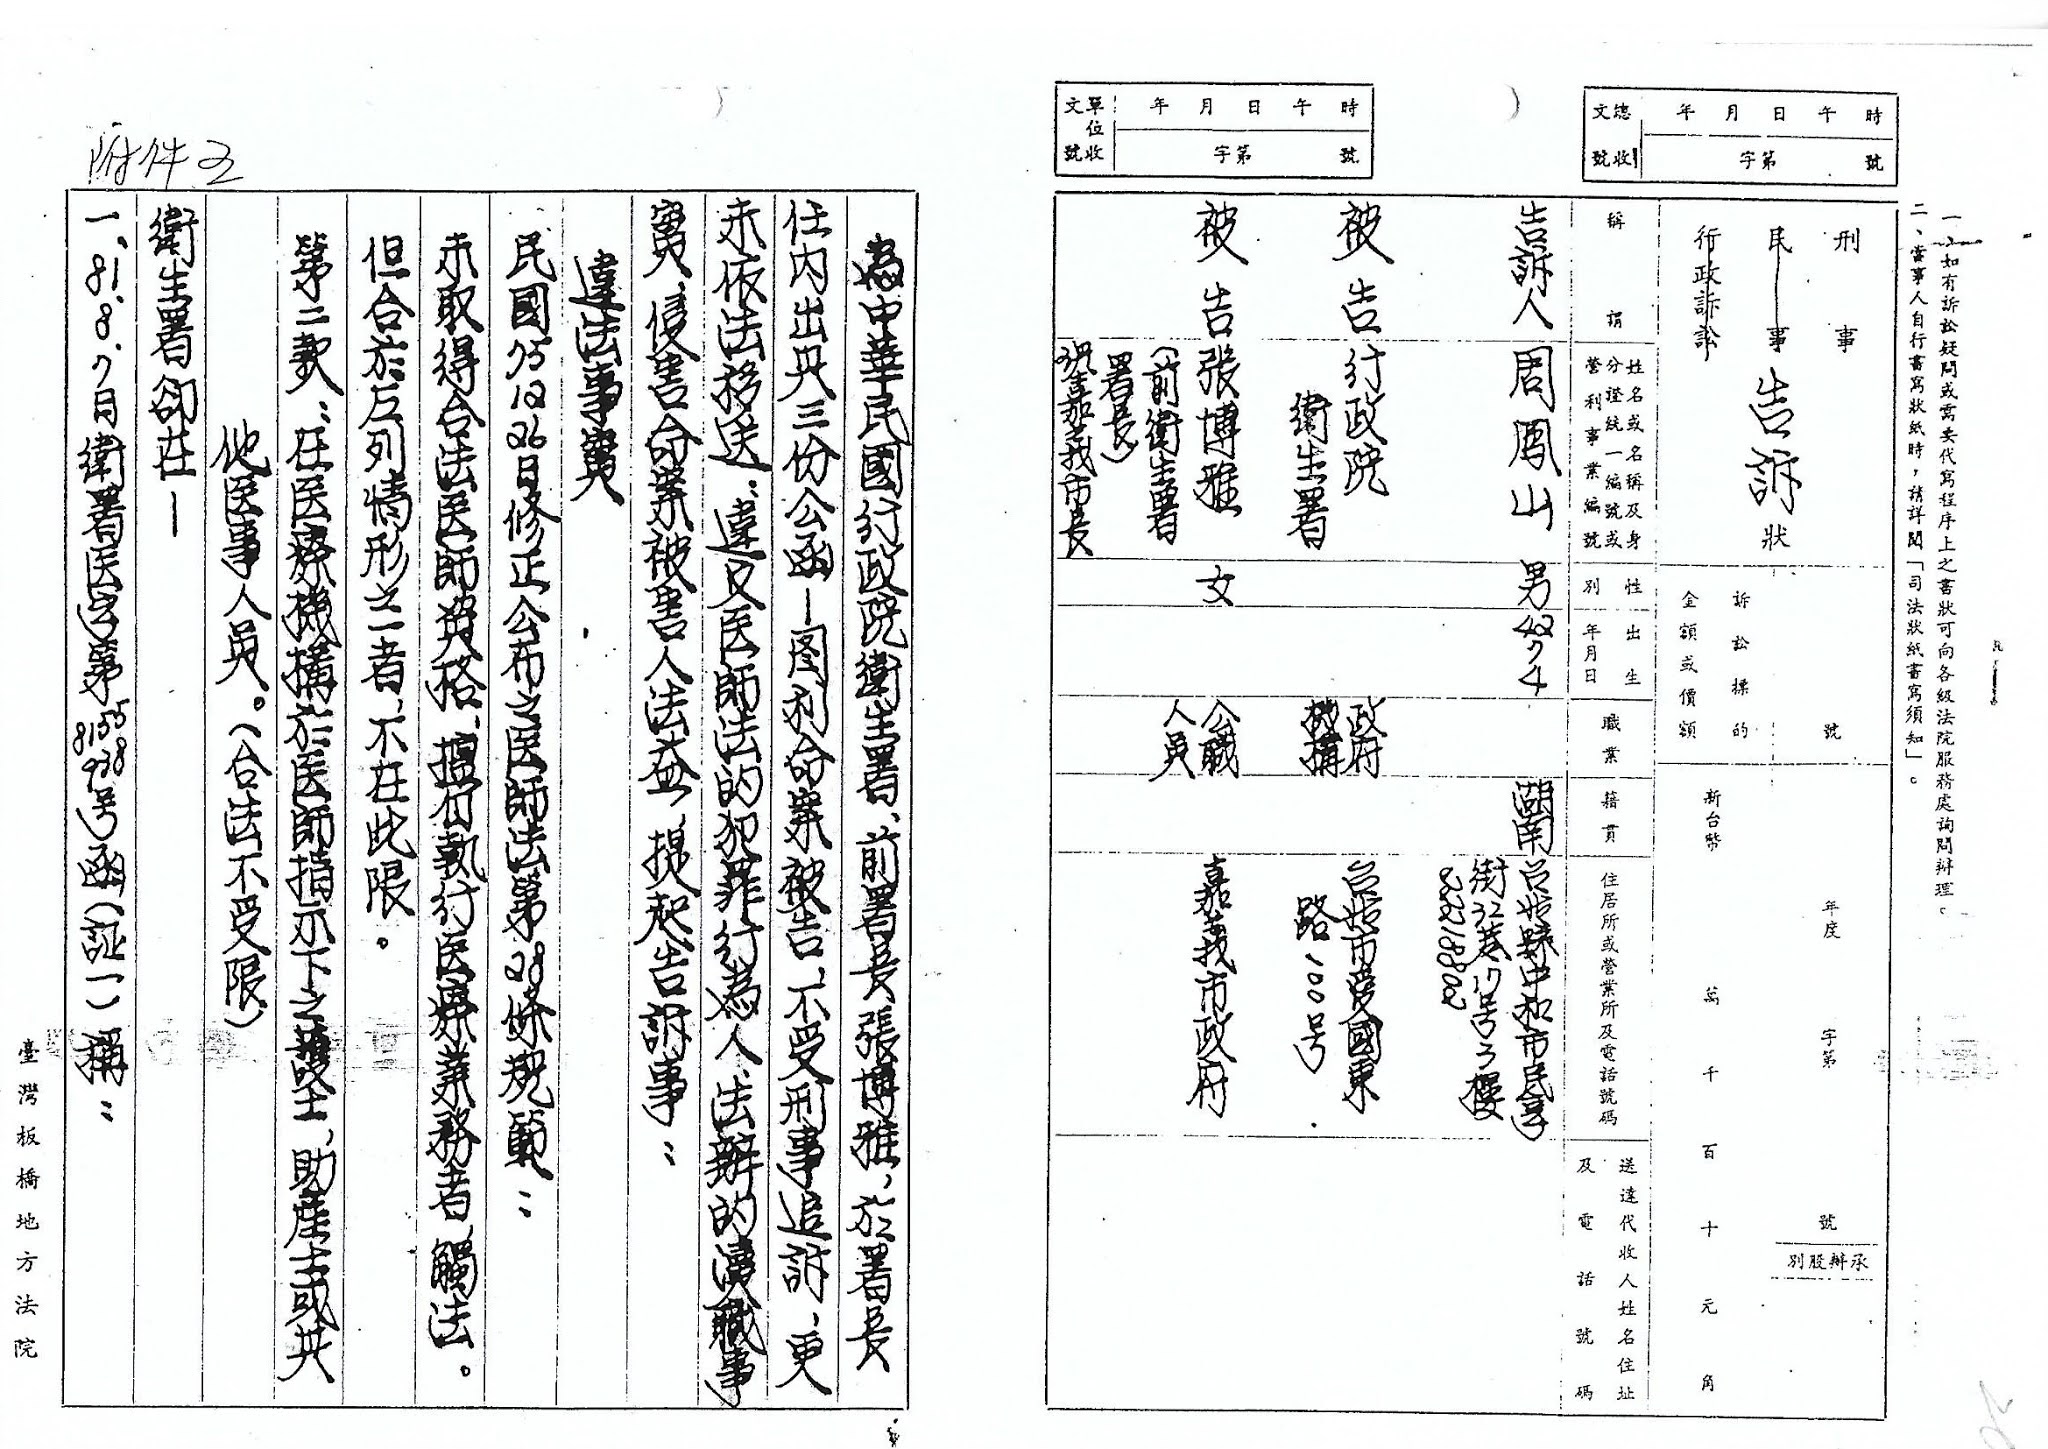 一、如有訴訟疑問或需委代寫程序上之書狀可向各級法院服務處詢問辦理。
二、當事人自行書寫狀紙時，請詳閱「司法狀紙書寫須知」。
總收文號 年 月 日 午 時
字第 號
單位收文號 年 月 日 午 時
字第 號
刑 事
民 事 告訴 狀
行政訴訟
號 年度 字第 號
承辦股別
訴訟標的
金額或價額
新台幣 萬 千 百 十 元 角
稱 謂
姓名或名稱及身
分證統一編號或
營利事業編號
性別
出生年月日
職業
籍貫
住居所或營業所及電話號碼
送達代收人姓名住址
及電話號碼
告訴人 周鳳山 男 42 7 4 湖南 台北縣中和市民享
街32巷17号3樓
22218802
被 告 行政院 政府 台北市愛國東
衛生署 機構 路一○○号
被 告 張博雅 女 公職 嘉義市政府
（前衛生署 人員
署長）
現嘉義市長
附件五
為中華民國行政院衛生署、前署長張博雅，於署長
任內出具三份公函—图利命案被告，不受刑事追訴，更
未依法移送：違反医師法的犯罪行為人、法辦的瀆職事
實、侵害命案被害人法益，提起告訴事：
違法事實
民國75 12 26日修正公布之医師法第28條規範：
未取得合法医師資格、擅自執行医療業務者，觸法。
但合於左列情形之一者，不在此限。
第二款：在医療機構於医師指示下之護士，助產士或其
他医事人員。（合法不受限）
衛生署卻在—
一、81.8.7日衛署医字第8155928号函（証一）稱：
臺灣板橋地方法院